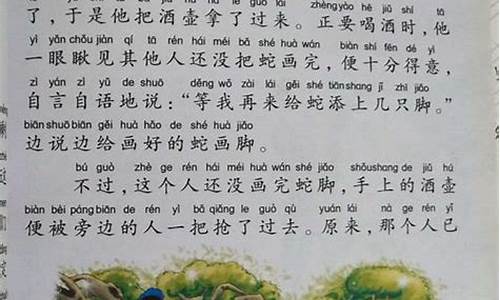 le guò lái zhèngyào hē jiǔ shí tā
了，于是他把酒壶拿了过来。正要喝酒时，他
yì yǎn chǒu jiàn qí tā rén hái méi bǎ shé huà wán biàn shí fēn dé yì
一眼瞅见其他人还没把蛇画完，便十分得意，
zì yán zì yǔ de shuō děng wǒ zài lái gěi shé tiānshang jǐ zhī jiǎo
自言自语地说：“等我再来给蛇添上几只脚。”
biānshuōbiān gěi huà hǎo de shé huà jiǎo
边说边给画好的蛇画脚。
bú guò zhè ge rén hái méi huà wán shé jiǎo shǒushang de jiǔ hú
不过，这个人还没画完蛇脚，手上的酒壶
biàn bèi pángbiān de rén yì bǎ qiǎng le guò qù yuán lái nà ge rén yǐ
便被旁边的人一把抢了过去。原来，那个人已